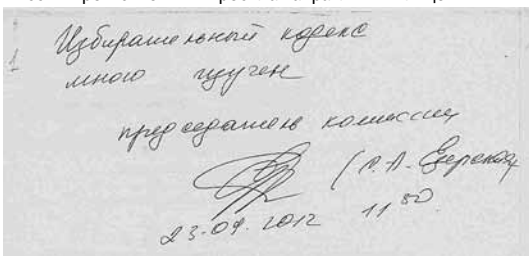 Избирательный кодекс
мною изучен
председатель комиссии
(Л.А. Езерская
23.09.2012 11 50